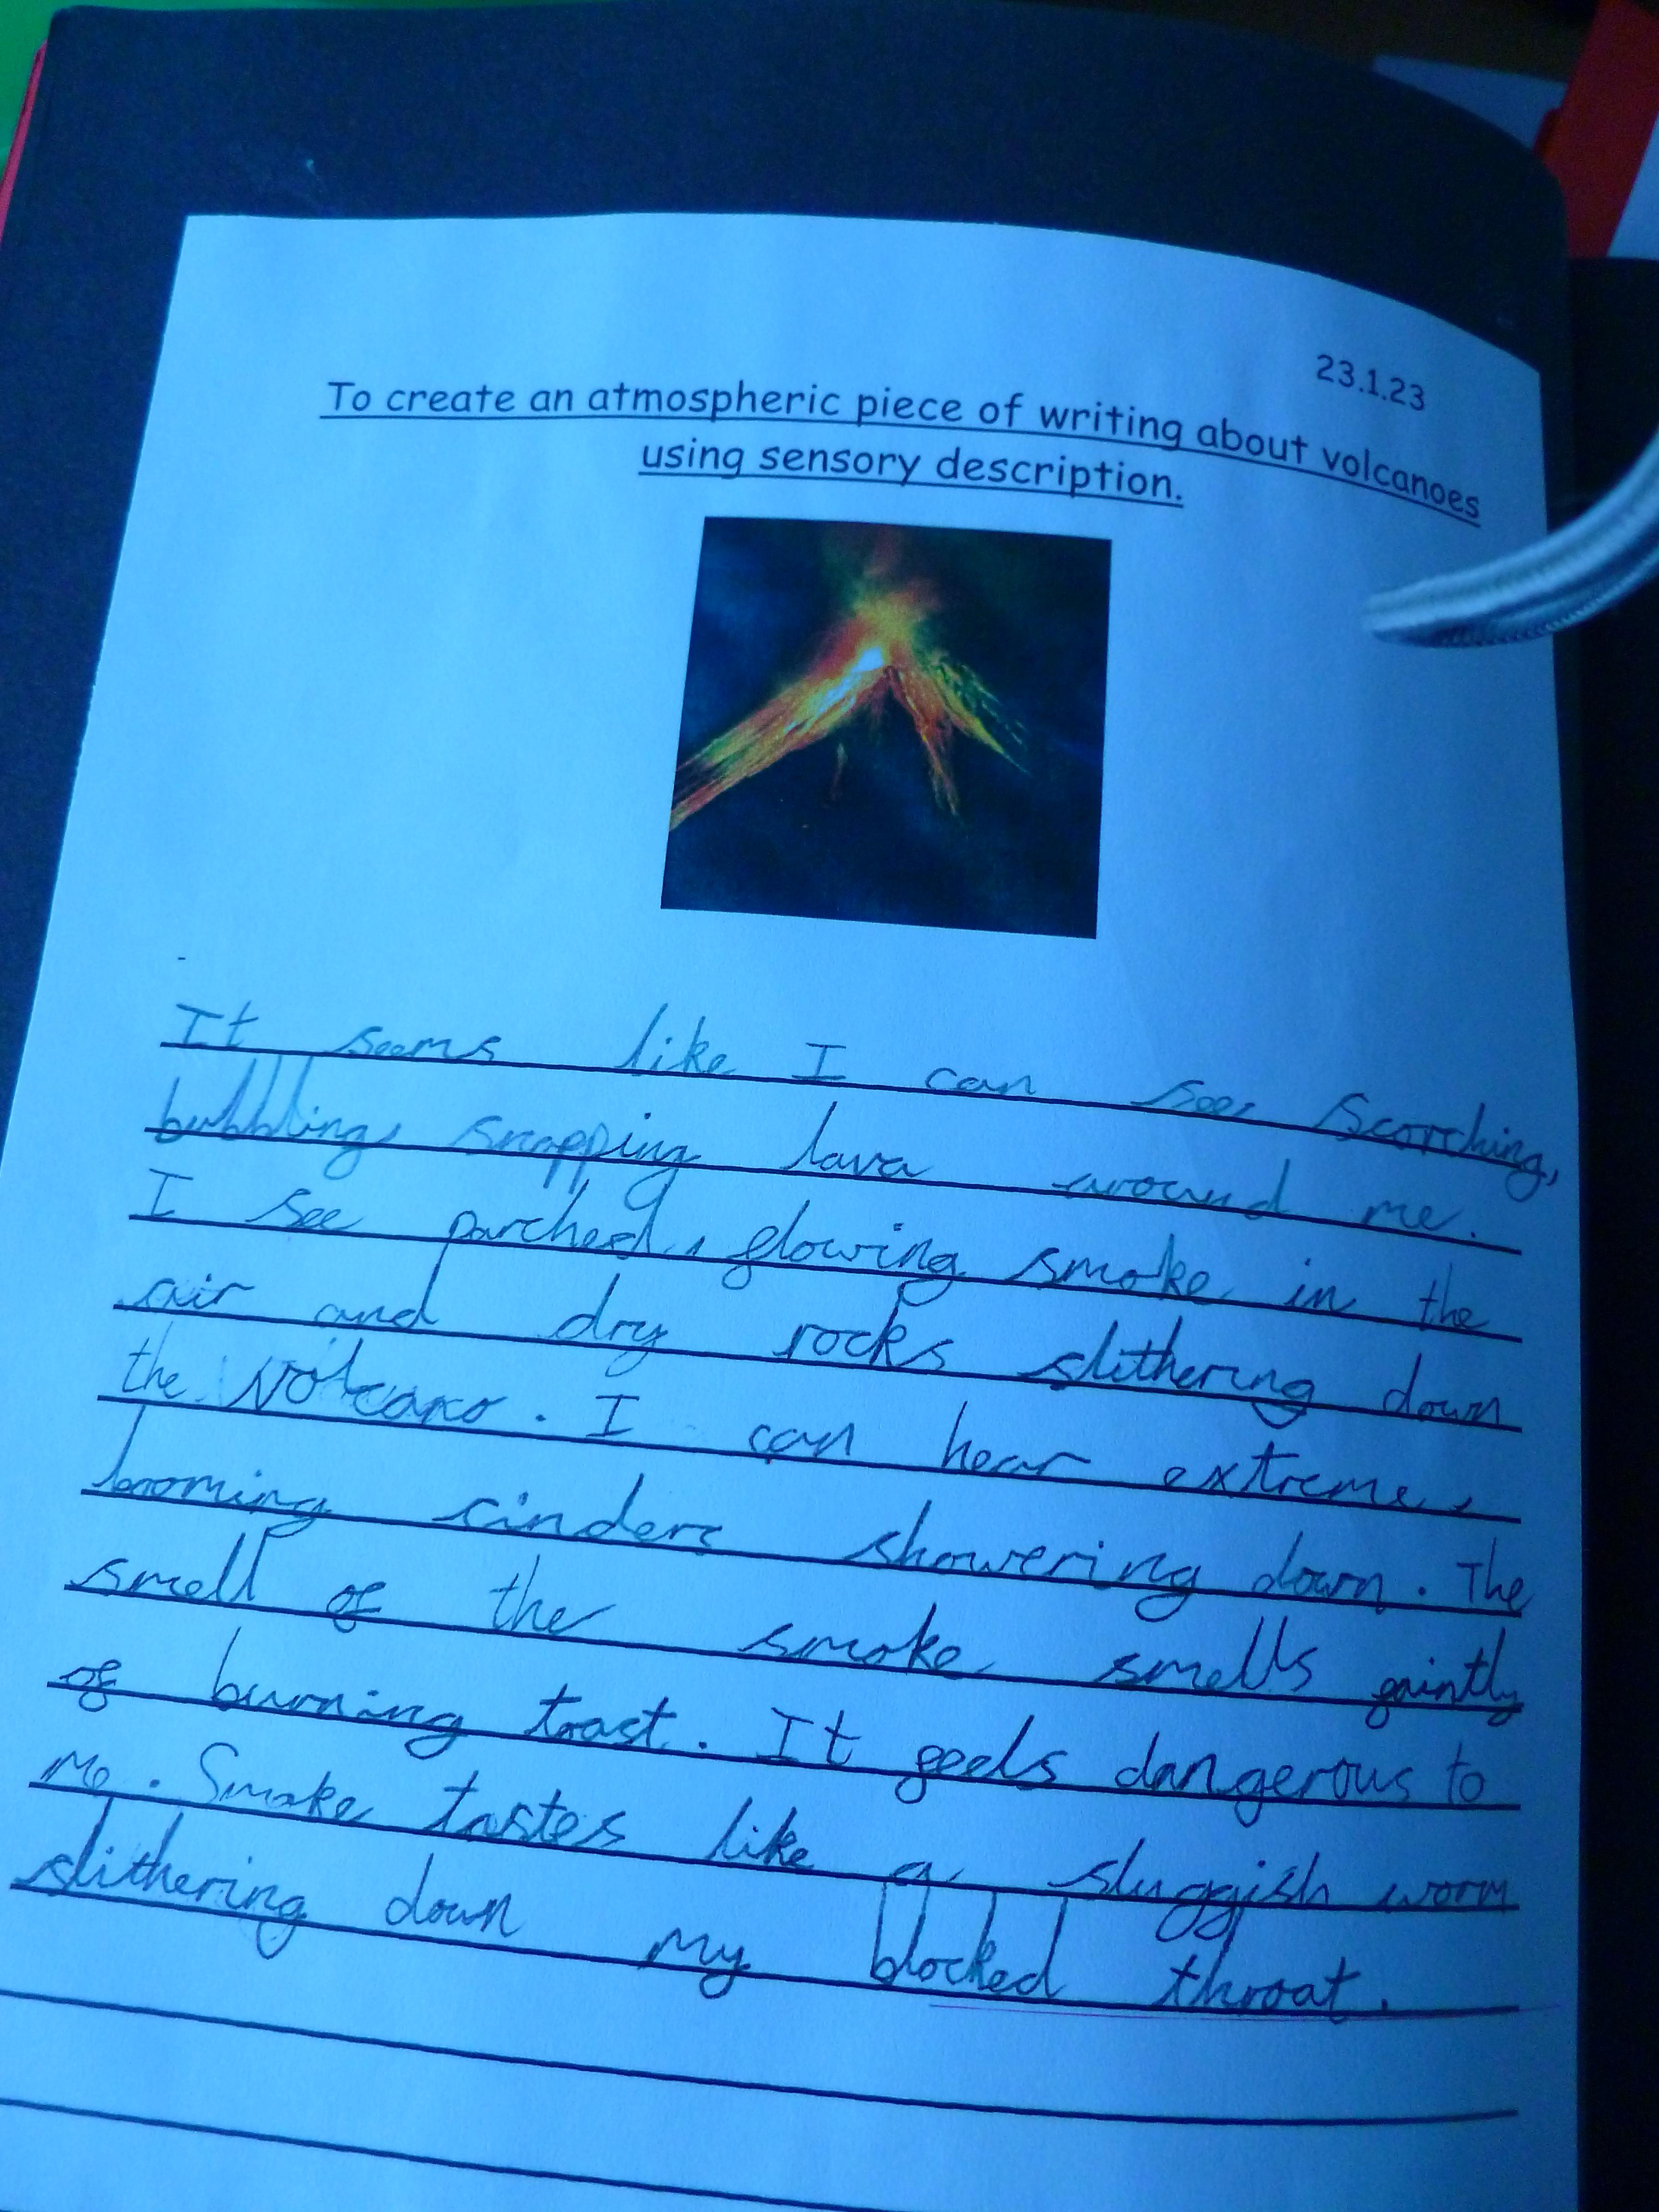 23.1.23
To create an atmospheric piece of writing about volcanoes
using sensory description.
It seems like I can see, Scorching,
bubbling, snapping lava around me.
I see parched, glowing smoke in the
air and dry rocks slithering down
the volcano. I can hear extreme,
booming cinders showering down. The
smell of the smoke smells faintly
of burning toast. It feels dangerous to
me. Smoke tastes like a sluggish worm
slithering down my blocked throat.